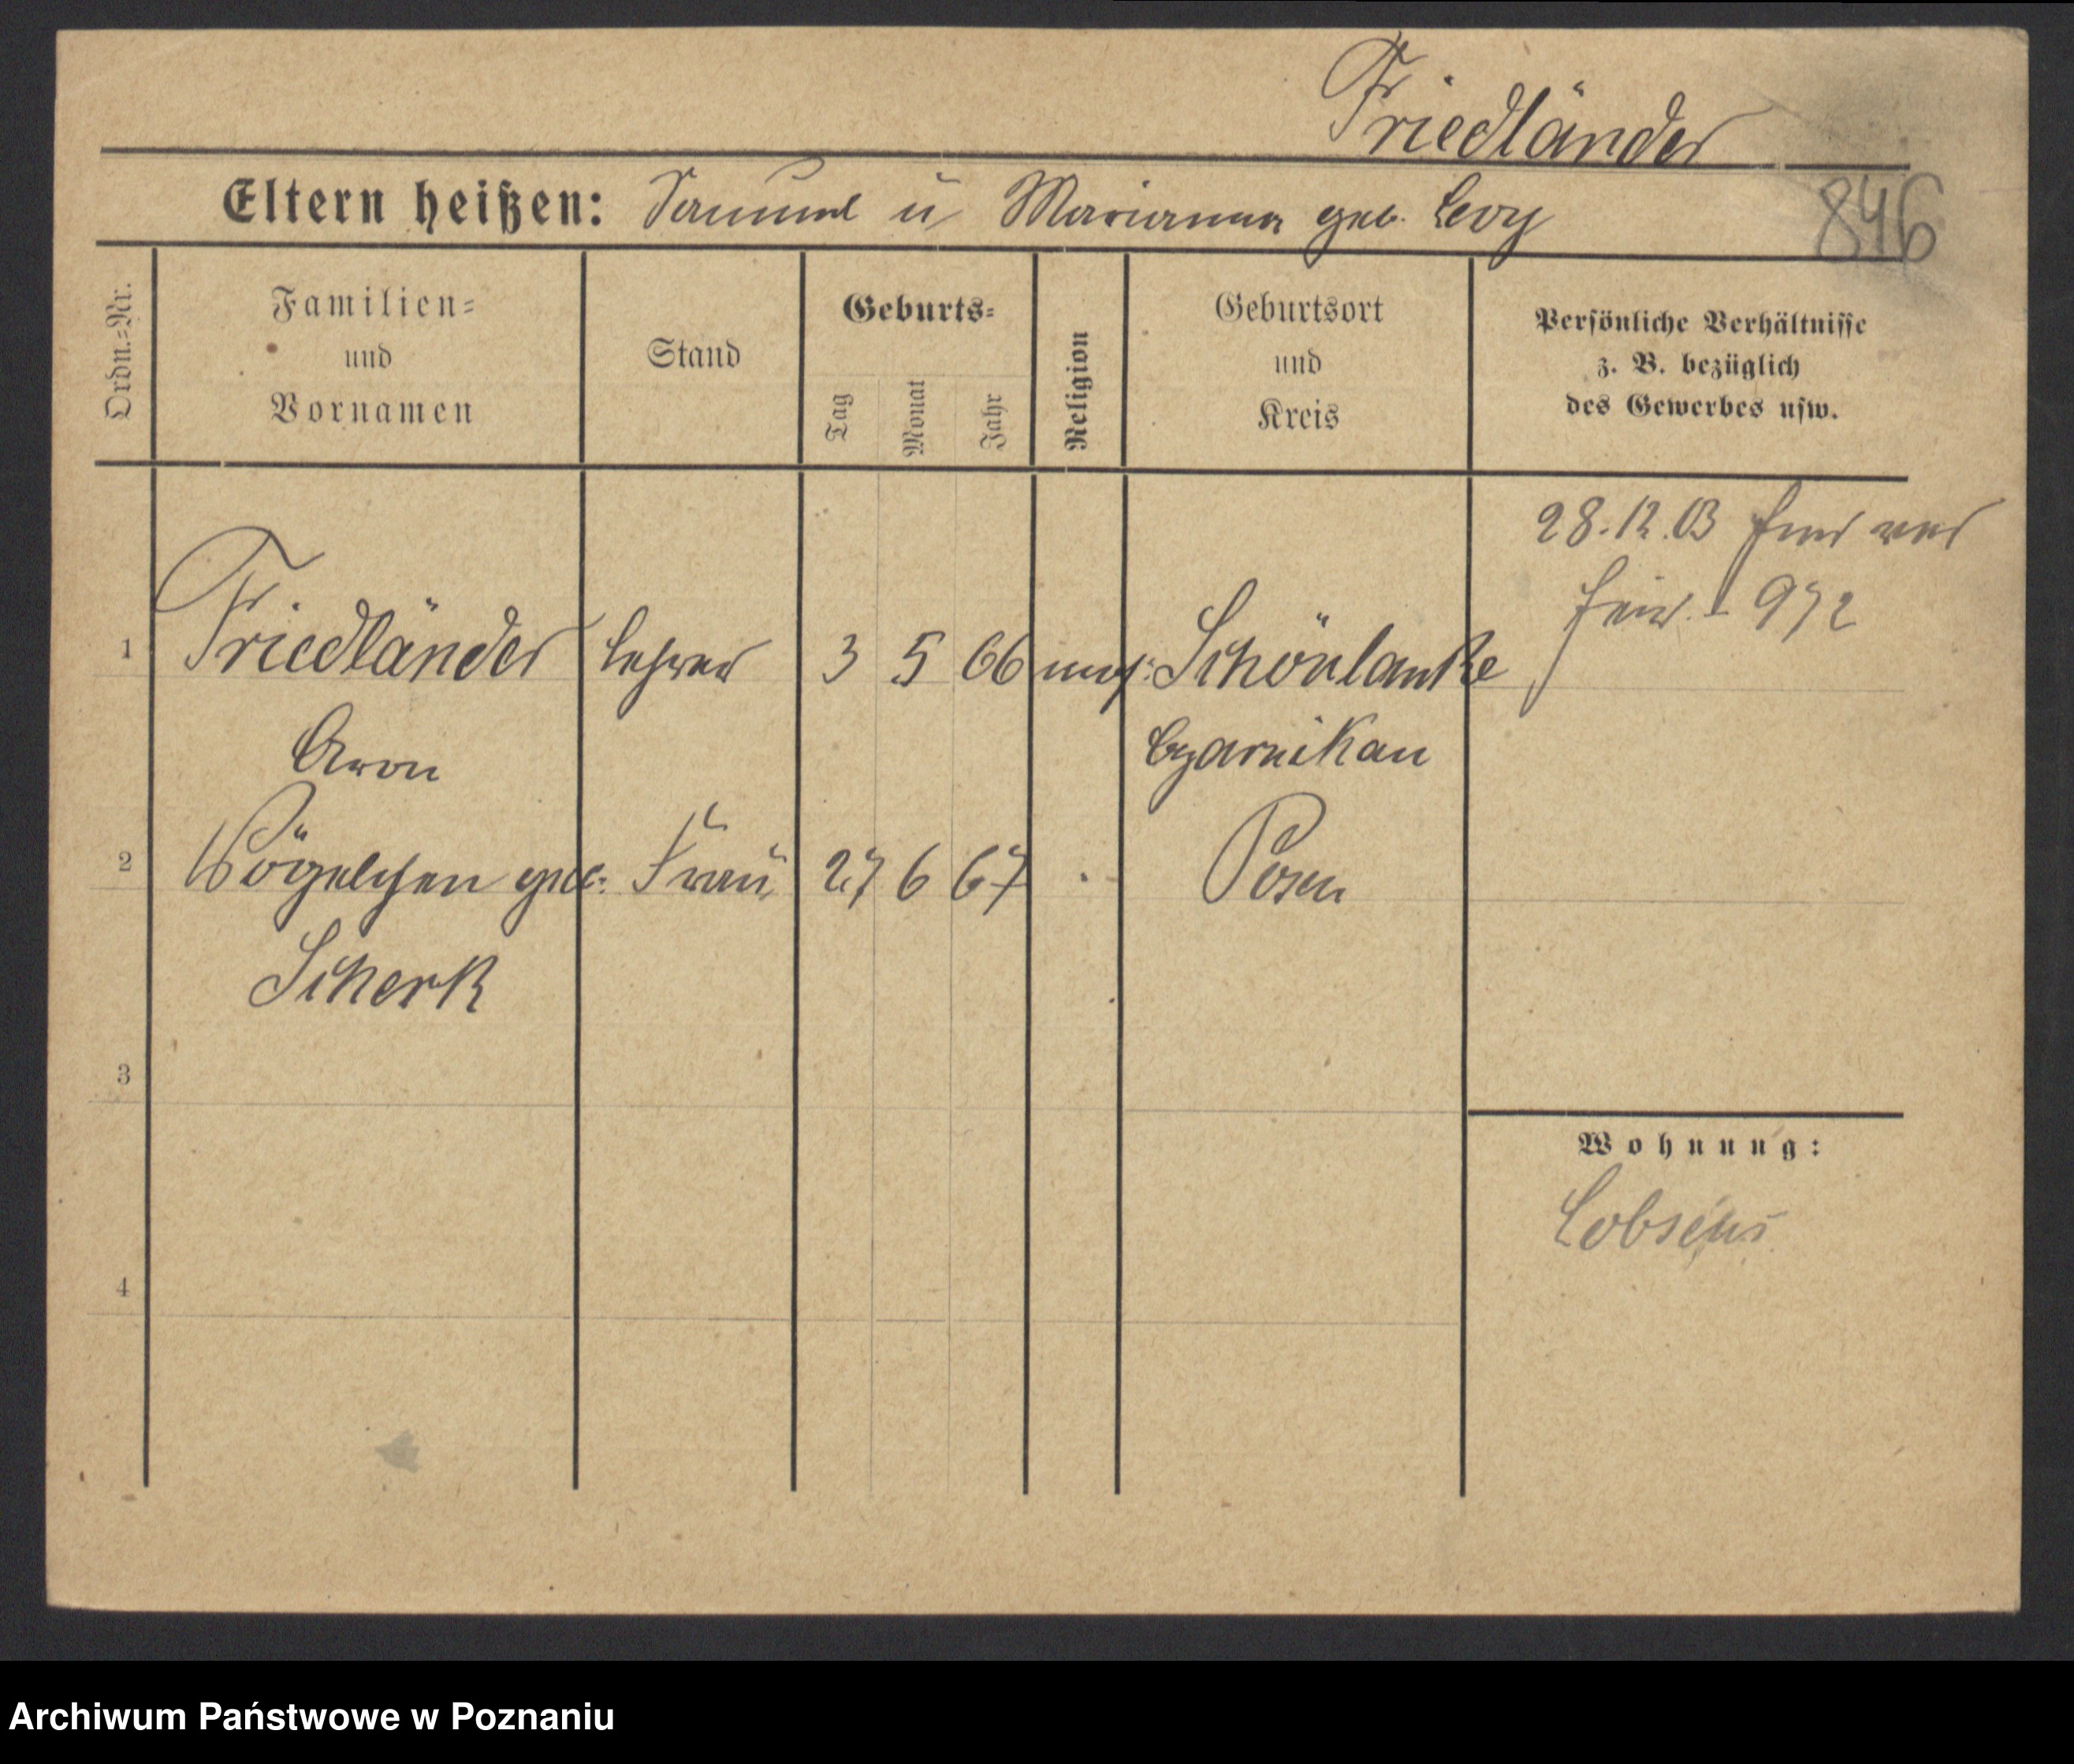 Friedländer
Eltern heißen: Samuel u Marianna geb. Levy
846
Ordn.=Nr.
Familien=
und
Vornamen
Stand
Geburts=
Tag
Monat
Jahr
Religion
Geburtsort
und
Kreis
Persönliche Verhältnisse
z. B. bezüglich
des Gewerbes usw.
28.12.03
972
1 Friedländer Lehrer 3 5 66 mos: Schönlanke
Aron Czarnikau
2 Vögelchen geb: Frau 27 6 67 Posen
Scherk
3
Wohnung:
Lobsens
4
Archiwum Państwowe w Poznaniu